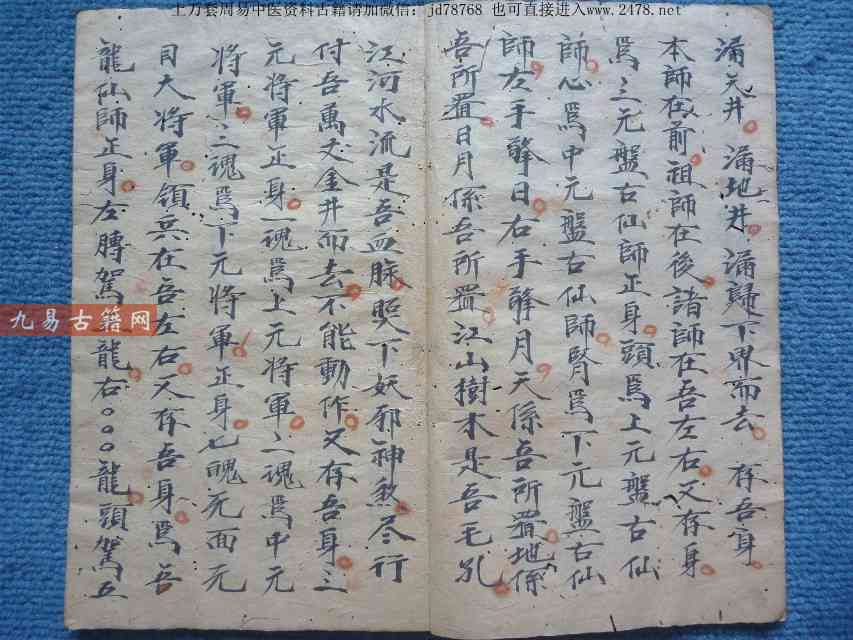 上万套周易中医资料古籍请加微信：jd78768 也可直接进入www.2478.net
涌天井涌地井涌歸下界而去存吾身
本師在前祖師在後諸師在吾左右又存身
爲三元盤古仙師正身頭爲上元盤古仙
師心爲中元盤古仙師腎爲下元盤古仙
師左手擎日右手擎月天係吾所置地係
吾所置日月係吾所置江山樹木是吾毛孔
江河水流是吾血脉照下妖邪神煞尽行
付吾萬丈金井而去不能動作又存吾身三
元將軍正身一魂爲上元將軍二魂爲中元
將軍三魂爲下元將軍正身七魄死面元
目大將軍領兵在吾左右又存吾身爲吾
龍仙師正身左膊駕龍右。。。龍頭駕五
九易古籍网